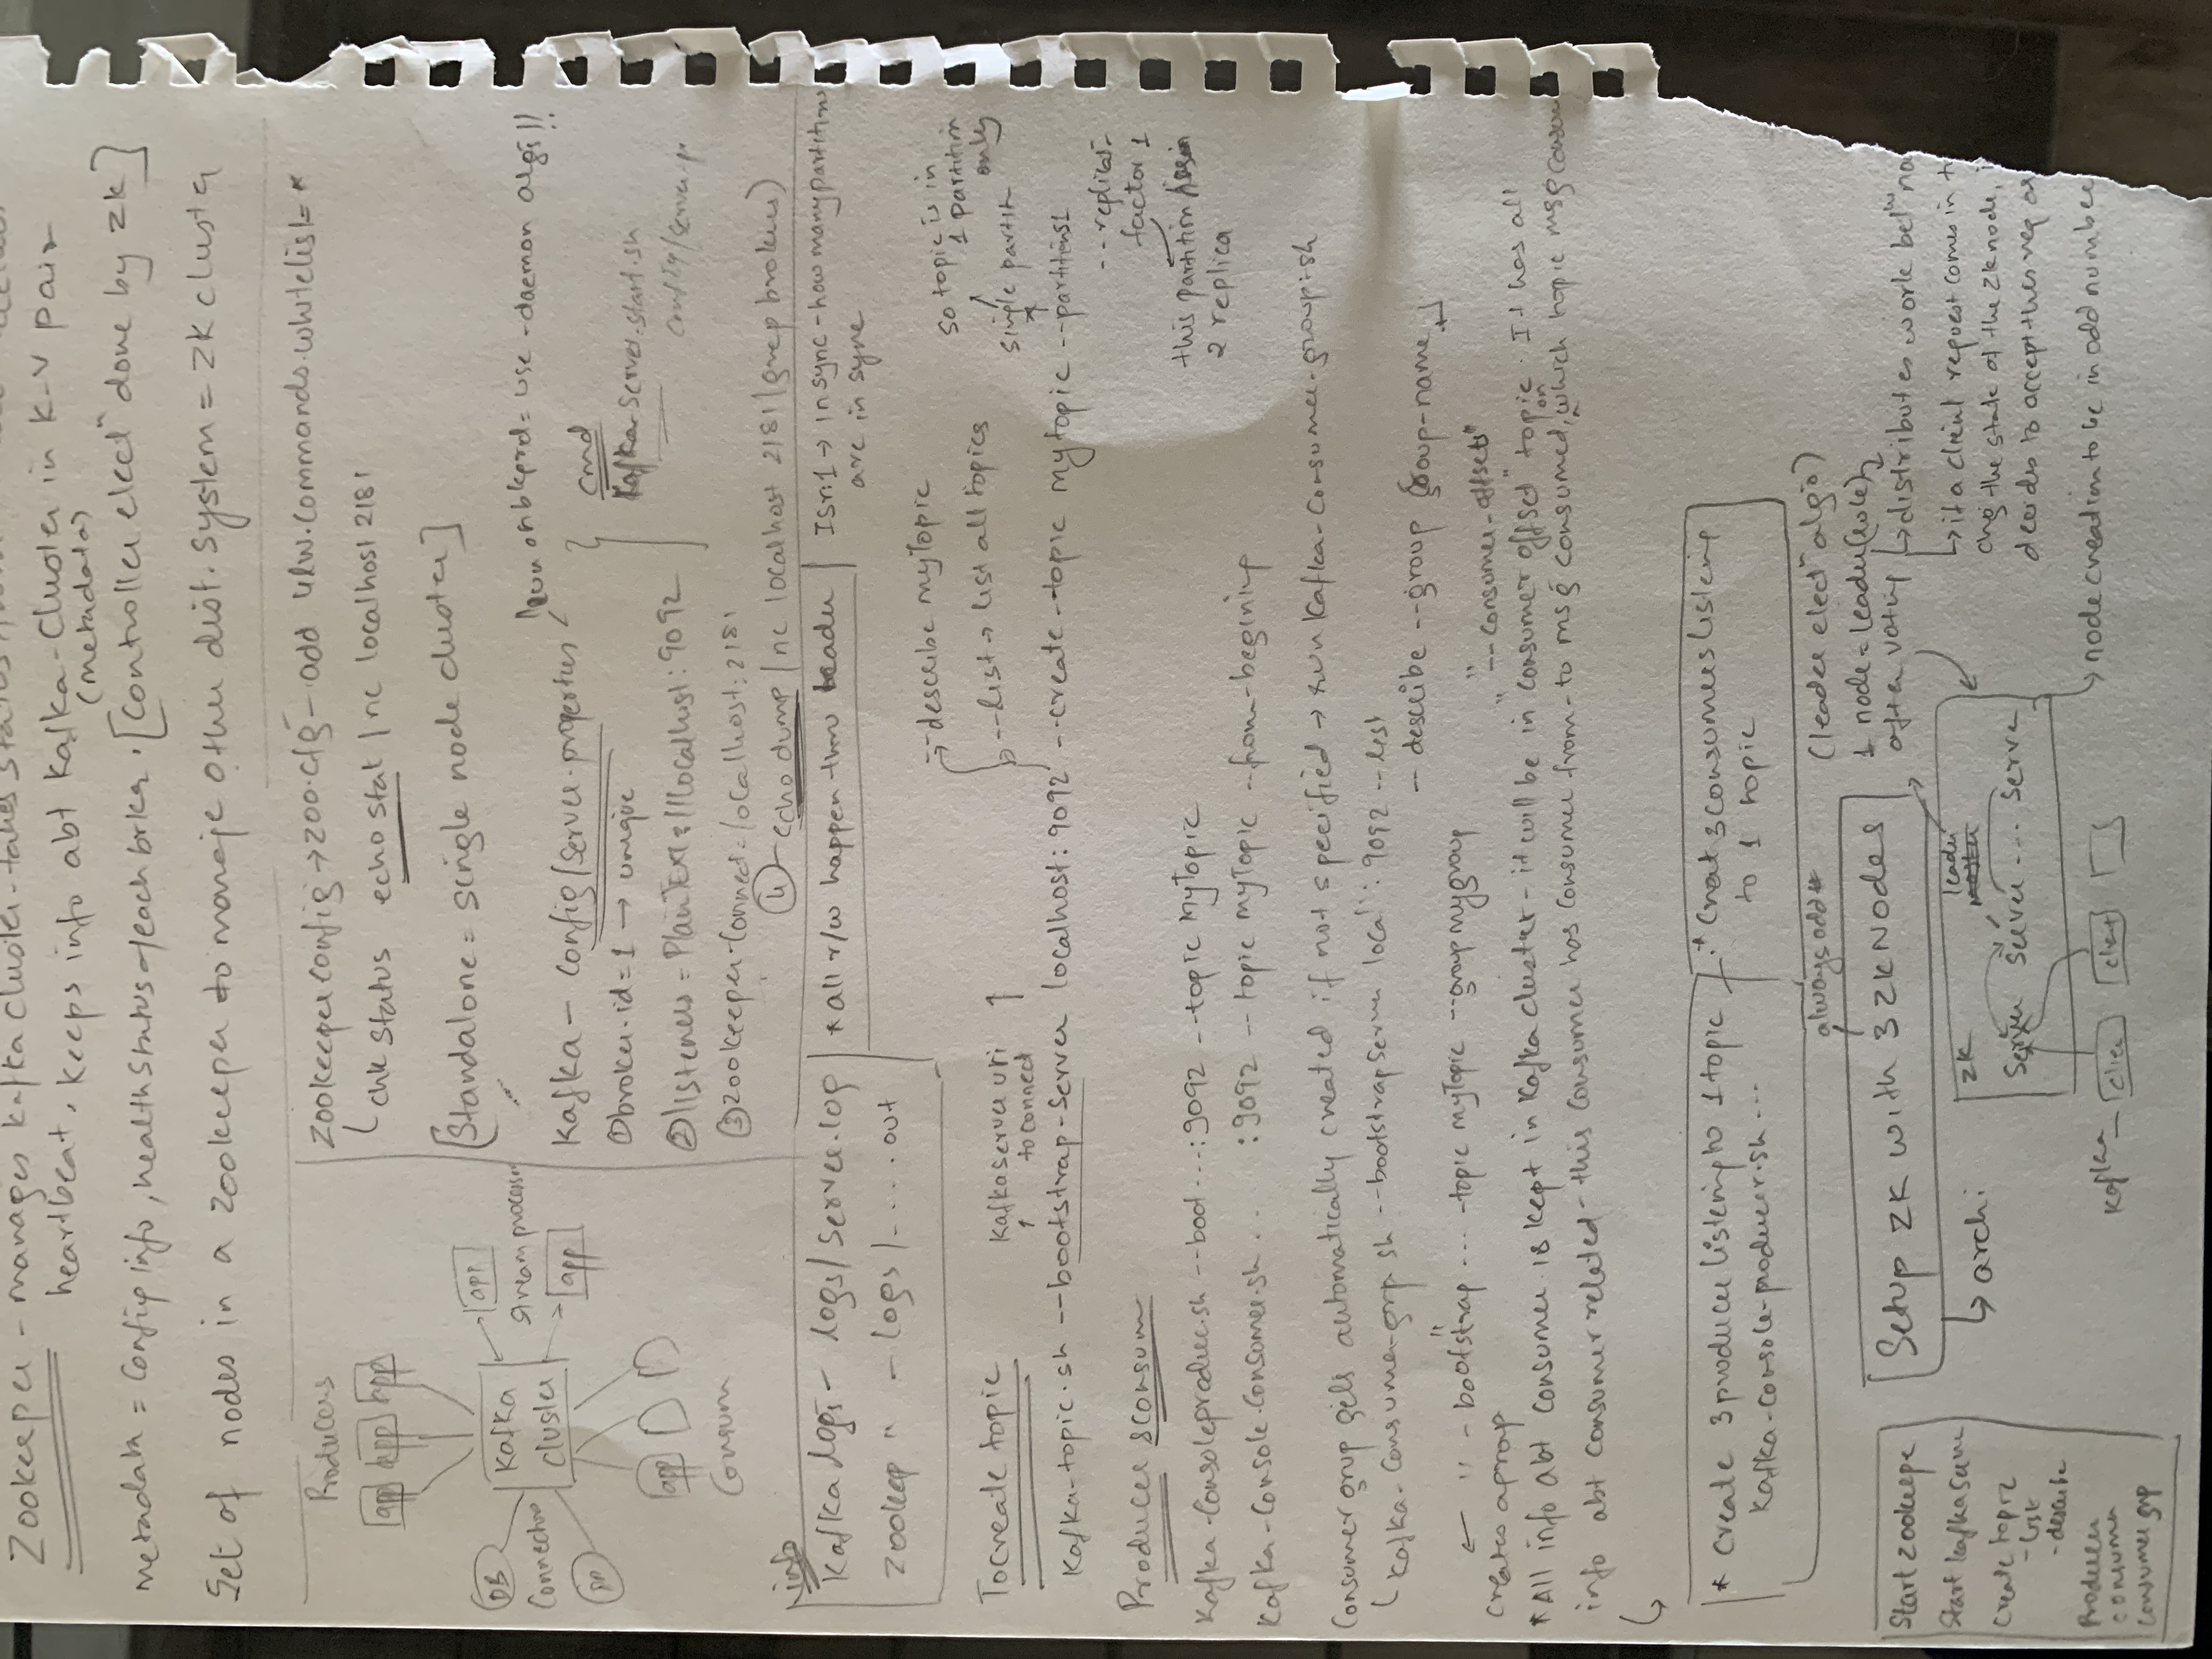 Zookeeper - manages Kafka Cluster - takes status
heartbeat, keeps info abt Kafka-Cluster in K-V pair
(metadata)
metadata = Config info, health status of each brker. [Controller electⁿ done by ZK]
Set of nodes in a zookeeper to manage other dist. system = ZK cluster
Producers
app app app
DB
Connectors
Kafka
cluster
app
stream processor
app
app
Consum
Zookeeper config → zoo.cfg - add 4lw.commands.whitelist = *
chk status echo stat | nc localhost 2181
[Standalone = single node cluster]
run on bkgrd = use -daemon algs!!
Kafka - config/server.properties
① broker.id = 1 → unique
② listeners = PlainTEXT://localhost:9092
③ zookeeper.connect = localhost:2181
④ echo dump | nc localhost 2181 | grep brokers)
cmd
Kafka-server-start.sh
config/server.p
info
Kafka logs - logs/server.log
zookeep " - logs/- .... out
* all r/w happen thru leader
Isr:1 → in sync - how many partitions
are in sync
--describe mytopic
--list → list all topics
so topic is in
1 partition
only
single partitn
To create topic
Kafka server uri
to connect
Kafka-topic.sh --bootstrap-server localhost:9092 --create -topic mytopic --partitions1
--replicat-
factor 1
this partition
2 replica
Producer &consum
Kafka-Consoleproduc.sh --boot ...:9092 --topic MyTopic
Kafka-Console.Consumer.sh .. :9092 -- topic MyTopic --from-begining
Consumer grup gets automatically created if not specified → run Kafka-Consumer-group.sh
Kafka-Consumer-grp.sh --bootstrapServer loca":9092 --list
-- describe --group group-name
" - bootstrap ... -topic myTopic --group mygroup
creates a group
"--consumer-offsets"
* All info abt consumer is kept in Kafka cluster - it will be in "consumer offset" topic. It has all
info abt consumer related - this consumer has consumer from - to msg consumed, on which topic msg consum
* Create 3 producer listening to 1 topic
Kafka-console-producer.sh ...
* Creat 3 consumers listening
to 1 topic
always odd #
Setup ZK with 3 ZK Nodes
(leader electⁿ algo)
1 node = leader(role)
after voting
distributes work betⁿ no
if a client request comes in t
chg the state of the ZK node, i
decides to accept this req or
archi
ZK
leader
master
Server Server ... Serve
Kafka - clien client
node creation to be in odd number
Start zookeepe
Start kafka serve
Create topic
- list
- describe
Producer
consumer
consumer grp